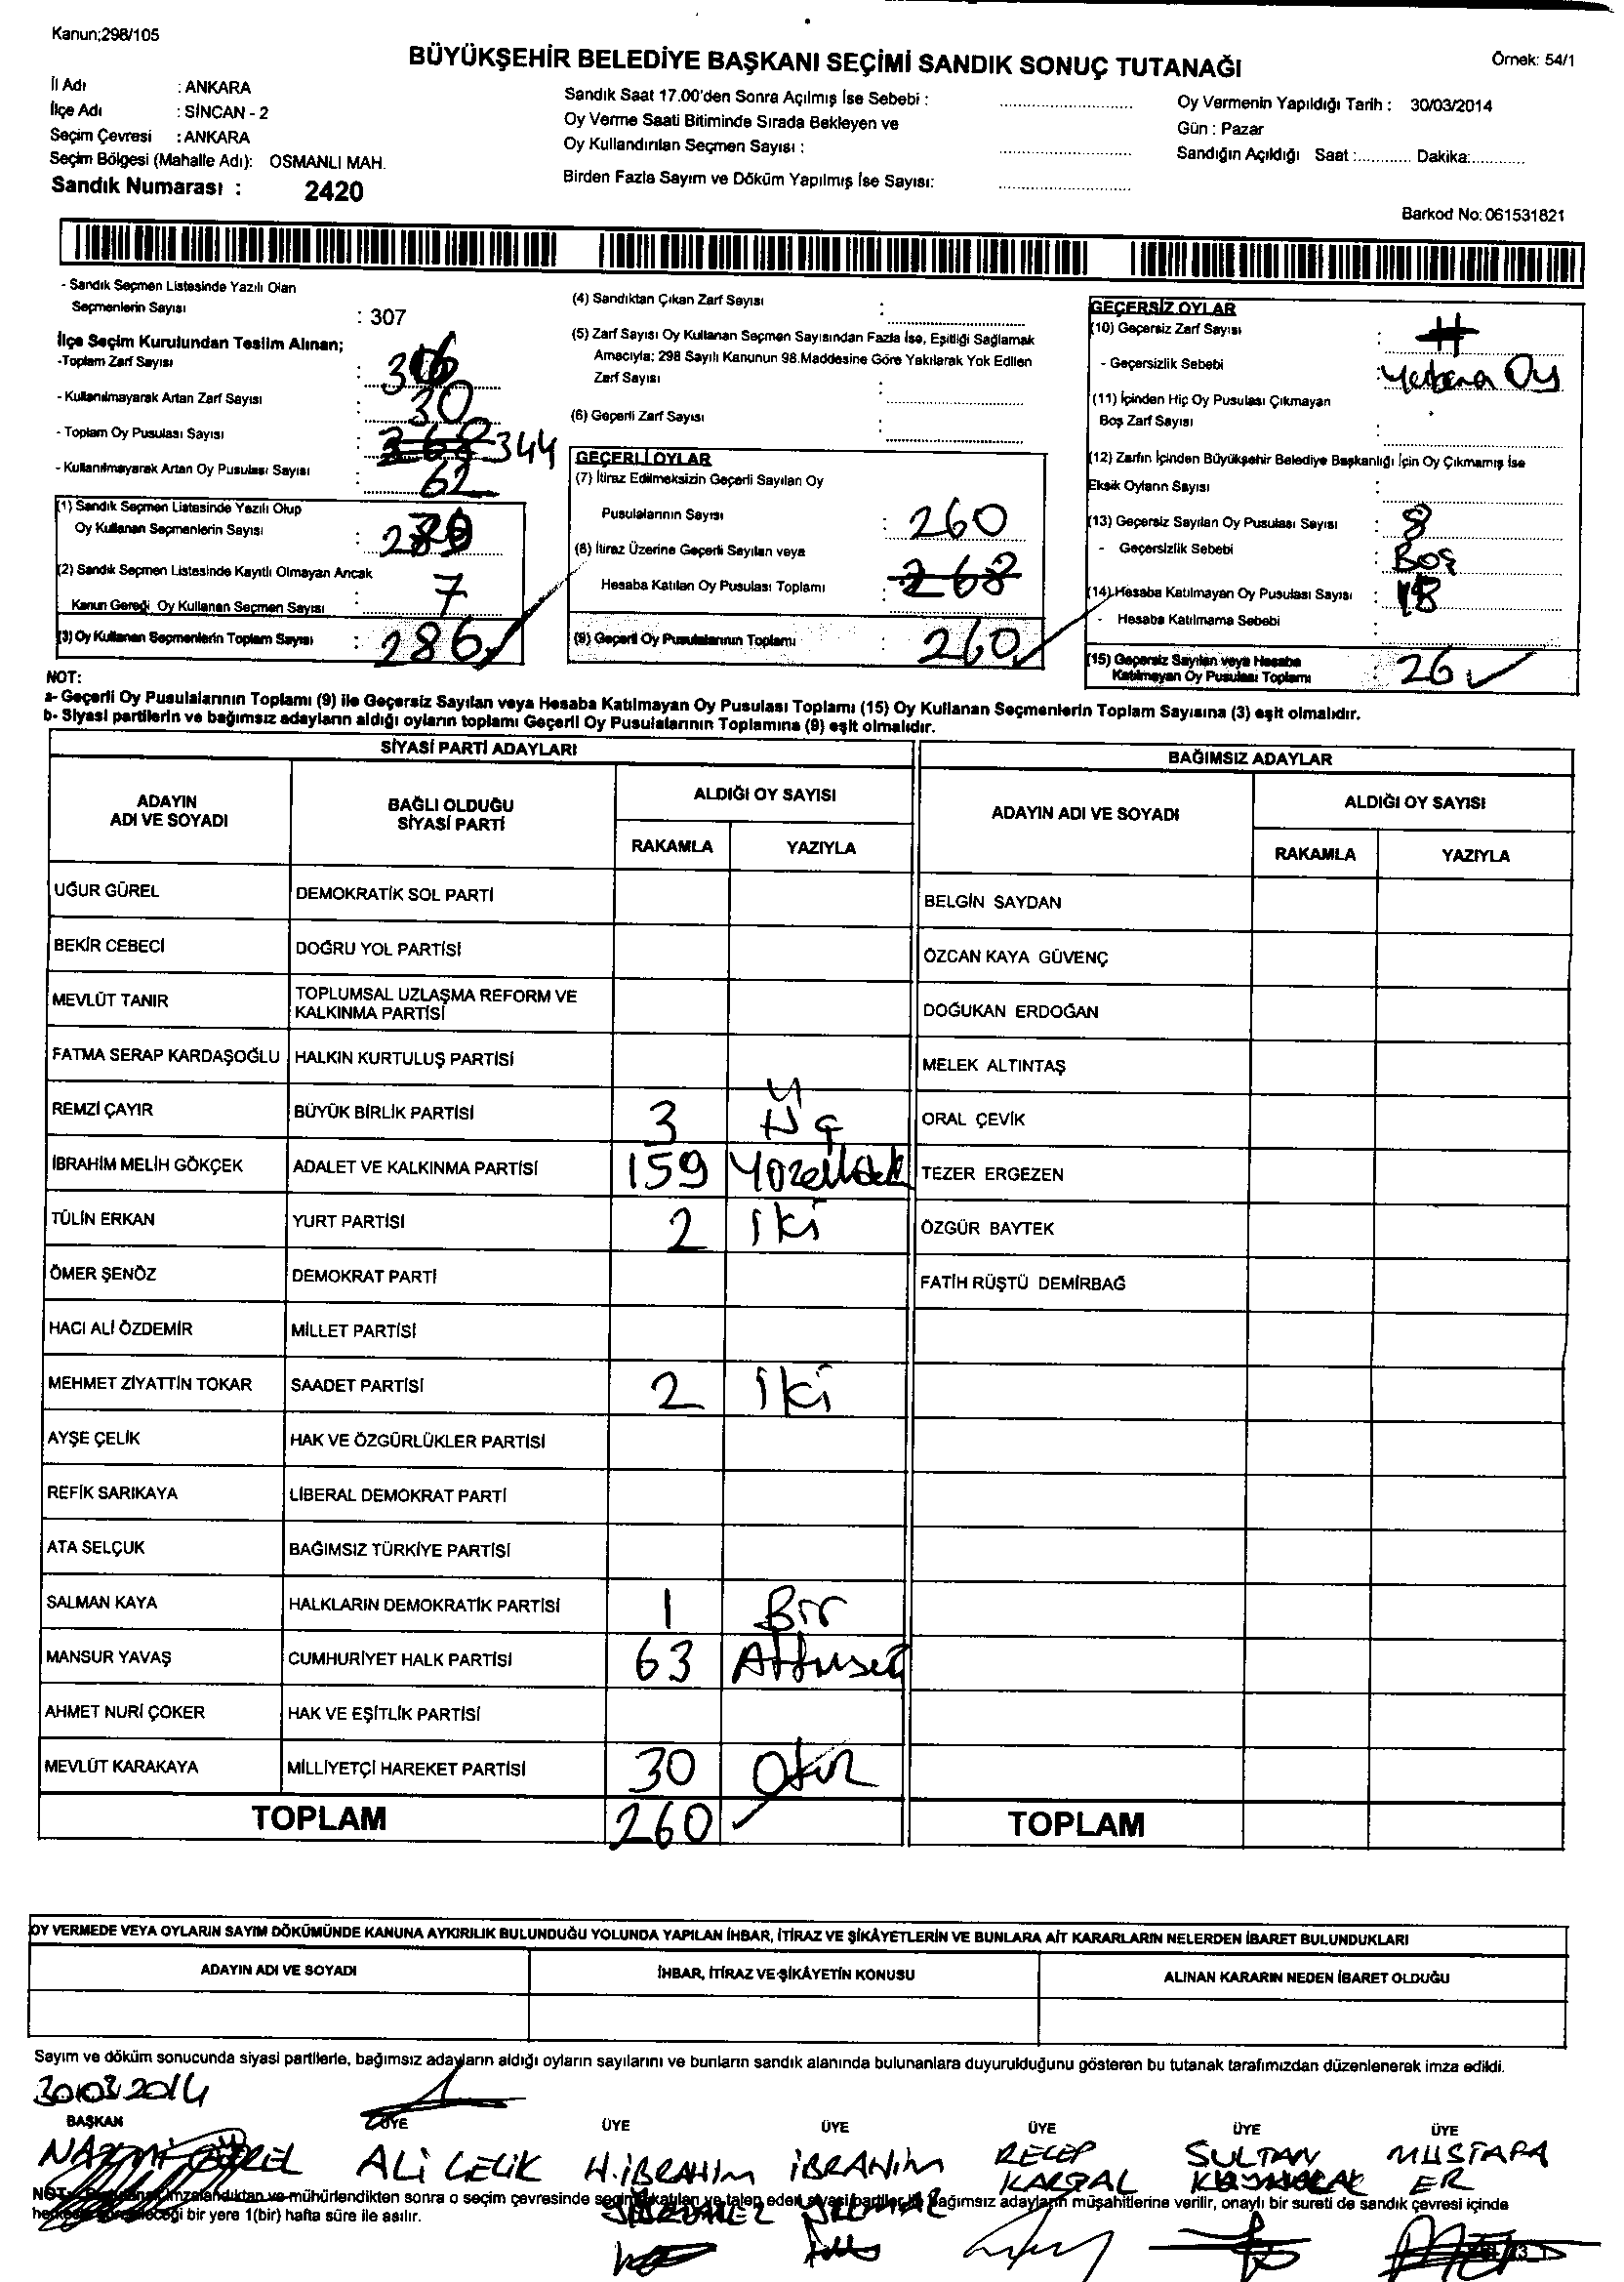 Kanun;298/105
BÜYÜKŞEHİR BELEDİYE BAŞKANI SEÇİMİ SANDIK SONUÇ TUTANAĞI
Örnek: 54/1
İl Adı : ANKARA
İlçe Adı : SİNCAN - 2
Seçim Çevresi : ANKARA
Seçim Bölgesi (Mahalle Adı): OSMANLI MAH.
Sandık Numarası : 2420
Sandık Saat 17.00'den Sonra Açılmış İse Sebebi :
Oy Verme Saati Bitiminde Sırada Bekleyen ve
Oy Kullandırılan Seçmen Sayısı :
Birden Fazla Sayım ve Döküm Yapılmış İse Sayısı:
Oy Vermenin Yapıldığı Tarih : 30/03/2014
Gün : Pazar
Sandığın Açıldığı Saat :............ Dakika:............
Barkod No: 061531821
- Sandık Seçmen Listesinde Yazılı Olan
Seçmenlerin Sayısı : 307
İlçe Seçim Kurulundan Teslim Alınan;
-Toplam Zarf Sayısı :
- Kullanılmayarak Artan Zarf Sayısı : 30
- Toplam Oy Pusulası Sayısı : 368 344
- Kullanılmayarak Artan Oy Pusulası Sayısı : 62
(1) Sandık Seçmen Listesinde Yazılı Olup
Oy Kullanan Seçmenlerin Sayısı :
(2) Sandık Seçmen Listesinde Kayıtlı Olmayan Ancak
Kanun Gereği Oy Kullanan Seçmen Sayısı : 7
(3) Oy Kullanan Seçmenlerin Toplam Sayısı : 286
(4) Sandıktan Çıkan Zarf Sayısı :
(5) Zarf Sayısı Oy Kullanan Seçmen Sayısından Fazla İse, Eşitliği Sağlamak
Amacıyla; 298 Sayılı Kanunun 98.Maddesine Göre Yakılarak Yok Edilen
Zarf Sayısı :
(6) Geçerli Zarf Sayısı :
GEÇERLİ OYLAR
(7) İtiraz Edilmeksizin Geçerli Sayılan Oy
Pusulalarının Sayısı : 260
(8) İtiraz Üzerine Geçerli Sayılan veya
Hesaba Katılan Oy Pusulası Toplamı : 268
(9) Geçerli Oy Pusulalarının Toplamı : 260
GEÇERSİZ OYLAR
(10) Geçersiz Zarf Sayısı :
- Geçersizlik Sebebi : Oy
(11) İçinden Hiç Oy Pusulası Çıkmayan
Boş Zarf Sayısı :
(12) Zarfın İçinden Büyükşehir Belediye Başkanlığı İçin Oy Çıkmamış İse
Eksik Oyların Sayısı :
(13) Geçersiz Sayılan Oy Pusulası Sayısı : 8
- Geçersizlik Sebebi : Boş
(14) Hesaba Katılmayan Oy Pusulası Sayısı : 18
- Hesaba Katılmama Sebebi :
(15) Geçersiz Sayılan veya Hesaba
Katılmayan Oy Pusulası Toplamı : 26
NOT:
a- Geçerli Oy Pusulalarının Toplamı (9) ile Geçersiz Sayılan veya Hesaba Katılmayan Oy Pusulası Toplamı (15) Oy Kullanan Seçmenlerin Toplam Sayısına (3) eşit olmalıdır.
b- Siyasi partilerin ve bağımsız adayların aldığı oyların toplamı Geçerli Oy Pusulalarının Toplamına (9) eşit olmalıdır.
SİYASİ PARTİ ADAYLARI
ADAYIN ADI VE SOYADI BAĞLI OLDUĞU SİYASİ PARTİ ALDIĞI OY SAYISI
RAKAMLA YAZIYLA
UĞUR GÜREL DEMOKRATİK SOL PARTİ
BEKİR CEBECİ DOĞRU YOL PARTİSİ
MEVLÜT TANIR TOPLUMSAL UZLAŞMA REFORM VE KALKINMA PARTİSİ
FATMA SERAP KARDAŞOĞLU HALKIN KURTULUŞ PARTİSİ
REMZİ ÇAYIR BÜYÜK BİRLİK PARTİSİ 3
İBRAHİM MELİH GÖKÇEK ADALET VE KALKINMA PARTİSİ 159
TÜLİN ERKAN YURT PARTİSİ 2 iki
ÖMER ŞENÖZ DEMOKRAT PARTİ
HACI ALİ ÖZDEMİR MİLLET PARTİSİ
MEHMET ZİYATTİN TOKAR SAADET PARTİSİ 2 iki
AYŞE ÇELİK HAK VE ÖZGÜRLÜKLER PARTİSİ
REFİK SARIKAYA LİBERAL DEMOKRAT PARTİ
ATA SELÇUK BAĞIMSIZ TÜRKİYE PARTİSİ
SALMAN KAYA HALKLARIN DEMOKRATİK PARTİSİ 1 Bir
MANSUR YAVAŞ CUMHURİYET HALK PARTİSİ 63
AHMET NURİ ÇOKER HAK VE EŞİTLİK PARTİSİ
MEVLÜT KARAKAYA MİLLİYETÇİ HAREKET PARTİSİ 30 Otuz
TOPLAM 260
BAĞIMSIZ ADAYLAR
ADAYIN ADI VE SOYADI ALDIĞI OY SAYISI
RAKAMLA YAZIYLA
BELGİN SAYDAN
ÖZCAN KAYA GÜVENÇ
DOĞUKAN ERDOĞAN
MELEK ALTINTAŞ
ORAL ÇEVİK
TEZER ERGEZEN
ÖZGÜR BAYTEK
FATİH RÜŞTÜ DEMİRBAĞ
TOPLAM
OY VERMEDE VEYA OYLARIN SAYIM DÖKÜMÜNDE KANUNA AYKIRILIK BULUNDUĞU YOLUNDA YAPILAN İHBAR, İTİRAZ VE ŞİKÂYETLERİN VE BUNLARA AİT KARARLARIN NELERDEN İBARET BULUNDUKLARI
ADAYIN ADI VE SOYADI İHBAR, İTİRAZ VE ŞİKÂYETİN KONUSU ALINAN KARARIN NEDEN İBARET OLDUĞU
Sayım ve döküm sonucunda siyasi partilerle, bağımsız adayların aldığı oyların sayılarını ve bunların sandık alanında bulunanlara duyurulduğunu gösteren bu tutanak tarafımızdan düzenlenerek imza edildi.
30.03.2014
BAŞKAN ÜYE ÜYE ÜYE ÜYE ÜYE ÜYE
ALİ ÇELİK H.İBRAHİM İBRAHİM RECEP SULTAN MUSTAFA
ER
NOT: imzalandıktan ve mühürlendikten sonra o seçim çevresinde seçime katılan ve talep eden siyasi partiler ile bağımsız adayların müşahitlerine verilir, onaylı bir sureti de sandık çevresi içinde
bir yere 1(bir) hafta süre ile asılır.